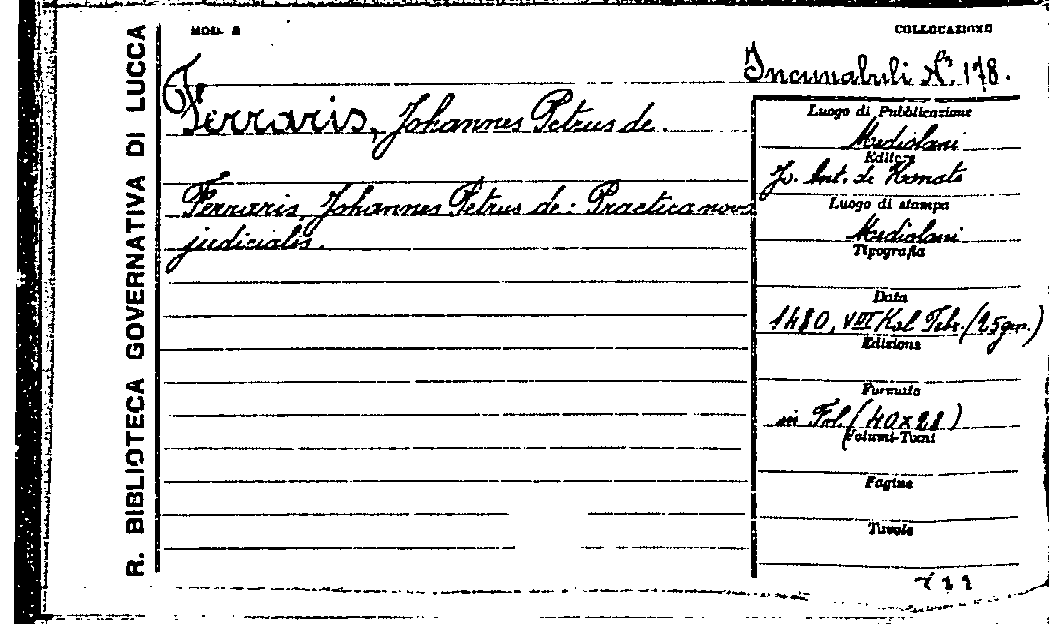 R. BIBLIOTECA GOVERNATIVA DI LUCCA
MOD. 2
COLLOCAZIONE
Incunabuli N. 178.
Ferraris, Johannes Petrus de.
Ferraris, Johannes Petrus de: Practica nova
judicialis.
Luogo di Pubblicazione
Mediolani
Editore
J. Ant. de Honate
Luogo di stampa
Mediolani
Tipografia
Data
1480, VIII Kal. Febr. (25 gen.)
Edizione
Formato
in Fol. (40x28)
Volumi-Tomi
Pagine
Tavole